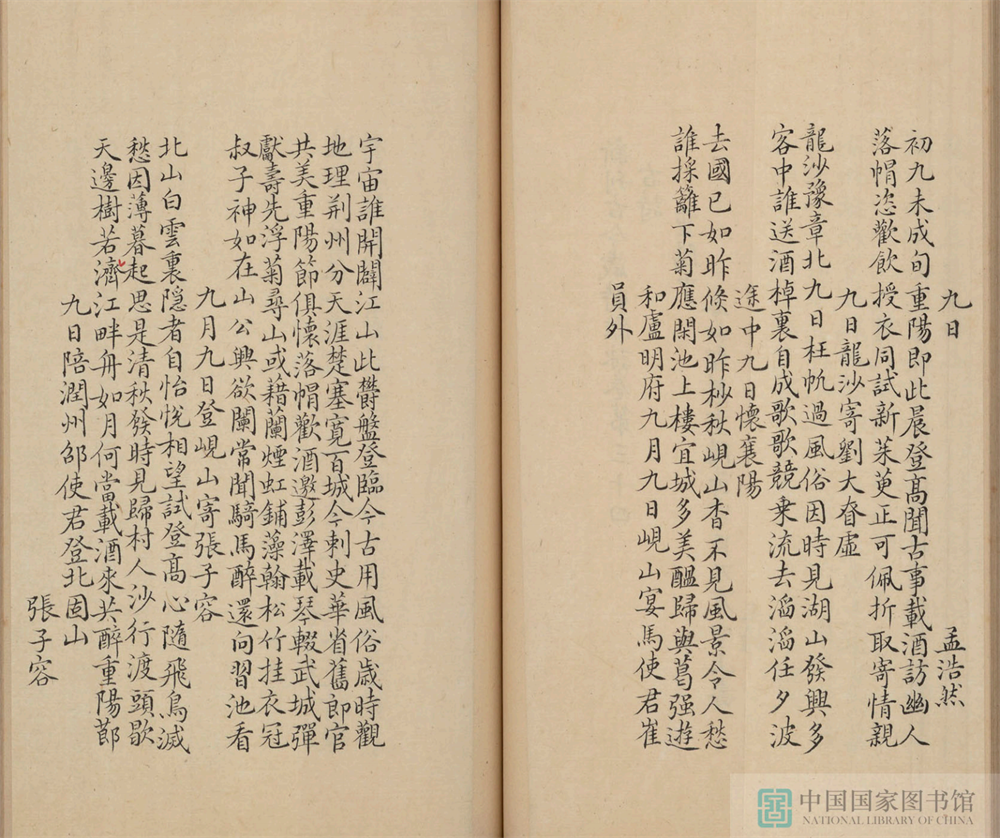 九日
孟浩然
初九未成旬重陽即此晨登髙聞古事載酒訪幽人
落帽恣歡飲授衣同試新茱萸正可佩折取寄情親
九日龍沙寄劉大眘虛
龍沙豫章北九日枉帆過風俗因時見湖山發興多
客中誰送酒棹裏自成歌歌競乗流去滔滔任夕波
途中九日懷襄陽
去國已如昨倏如昨杪秋峴山杳不見風景令人愁
誰採籬下菊應閑池上樓宜城多美醖歸與葛强遊
和盧明府九月九日峴山宴馬使君崔
員外
宇宙誰開闢江山此欝盤登臨今古用風俗歳時觀
地理荆州分天涯楚塞寛百城今刺史華省舊郎官
共美重陽節俱懷落帽歡酒邀彭澤載琴輟武城彈
獻壽先浮菊尋山或藉蘭煙虹鋪藻翰松竹挂衣冠
叔子神如在山公興欲闌常聞騎馬醉還向習池看
九月九日登峴山寄張子容
北山白雲裏隠者自怡悅相望試登髙心隨飛鳥滅
愁因薄暮起思是清秋發時見歸村人沙行渡頭歇
天邊樹若濟江畔舟如月何當載酒來共醉重陽節
九日陪潤州邵使君登北固山
張子容
中国国家图书馆
NATIONAL LIBRARY OF CHINA